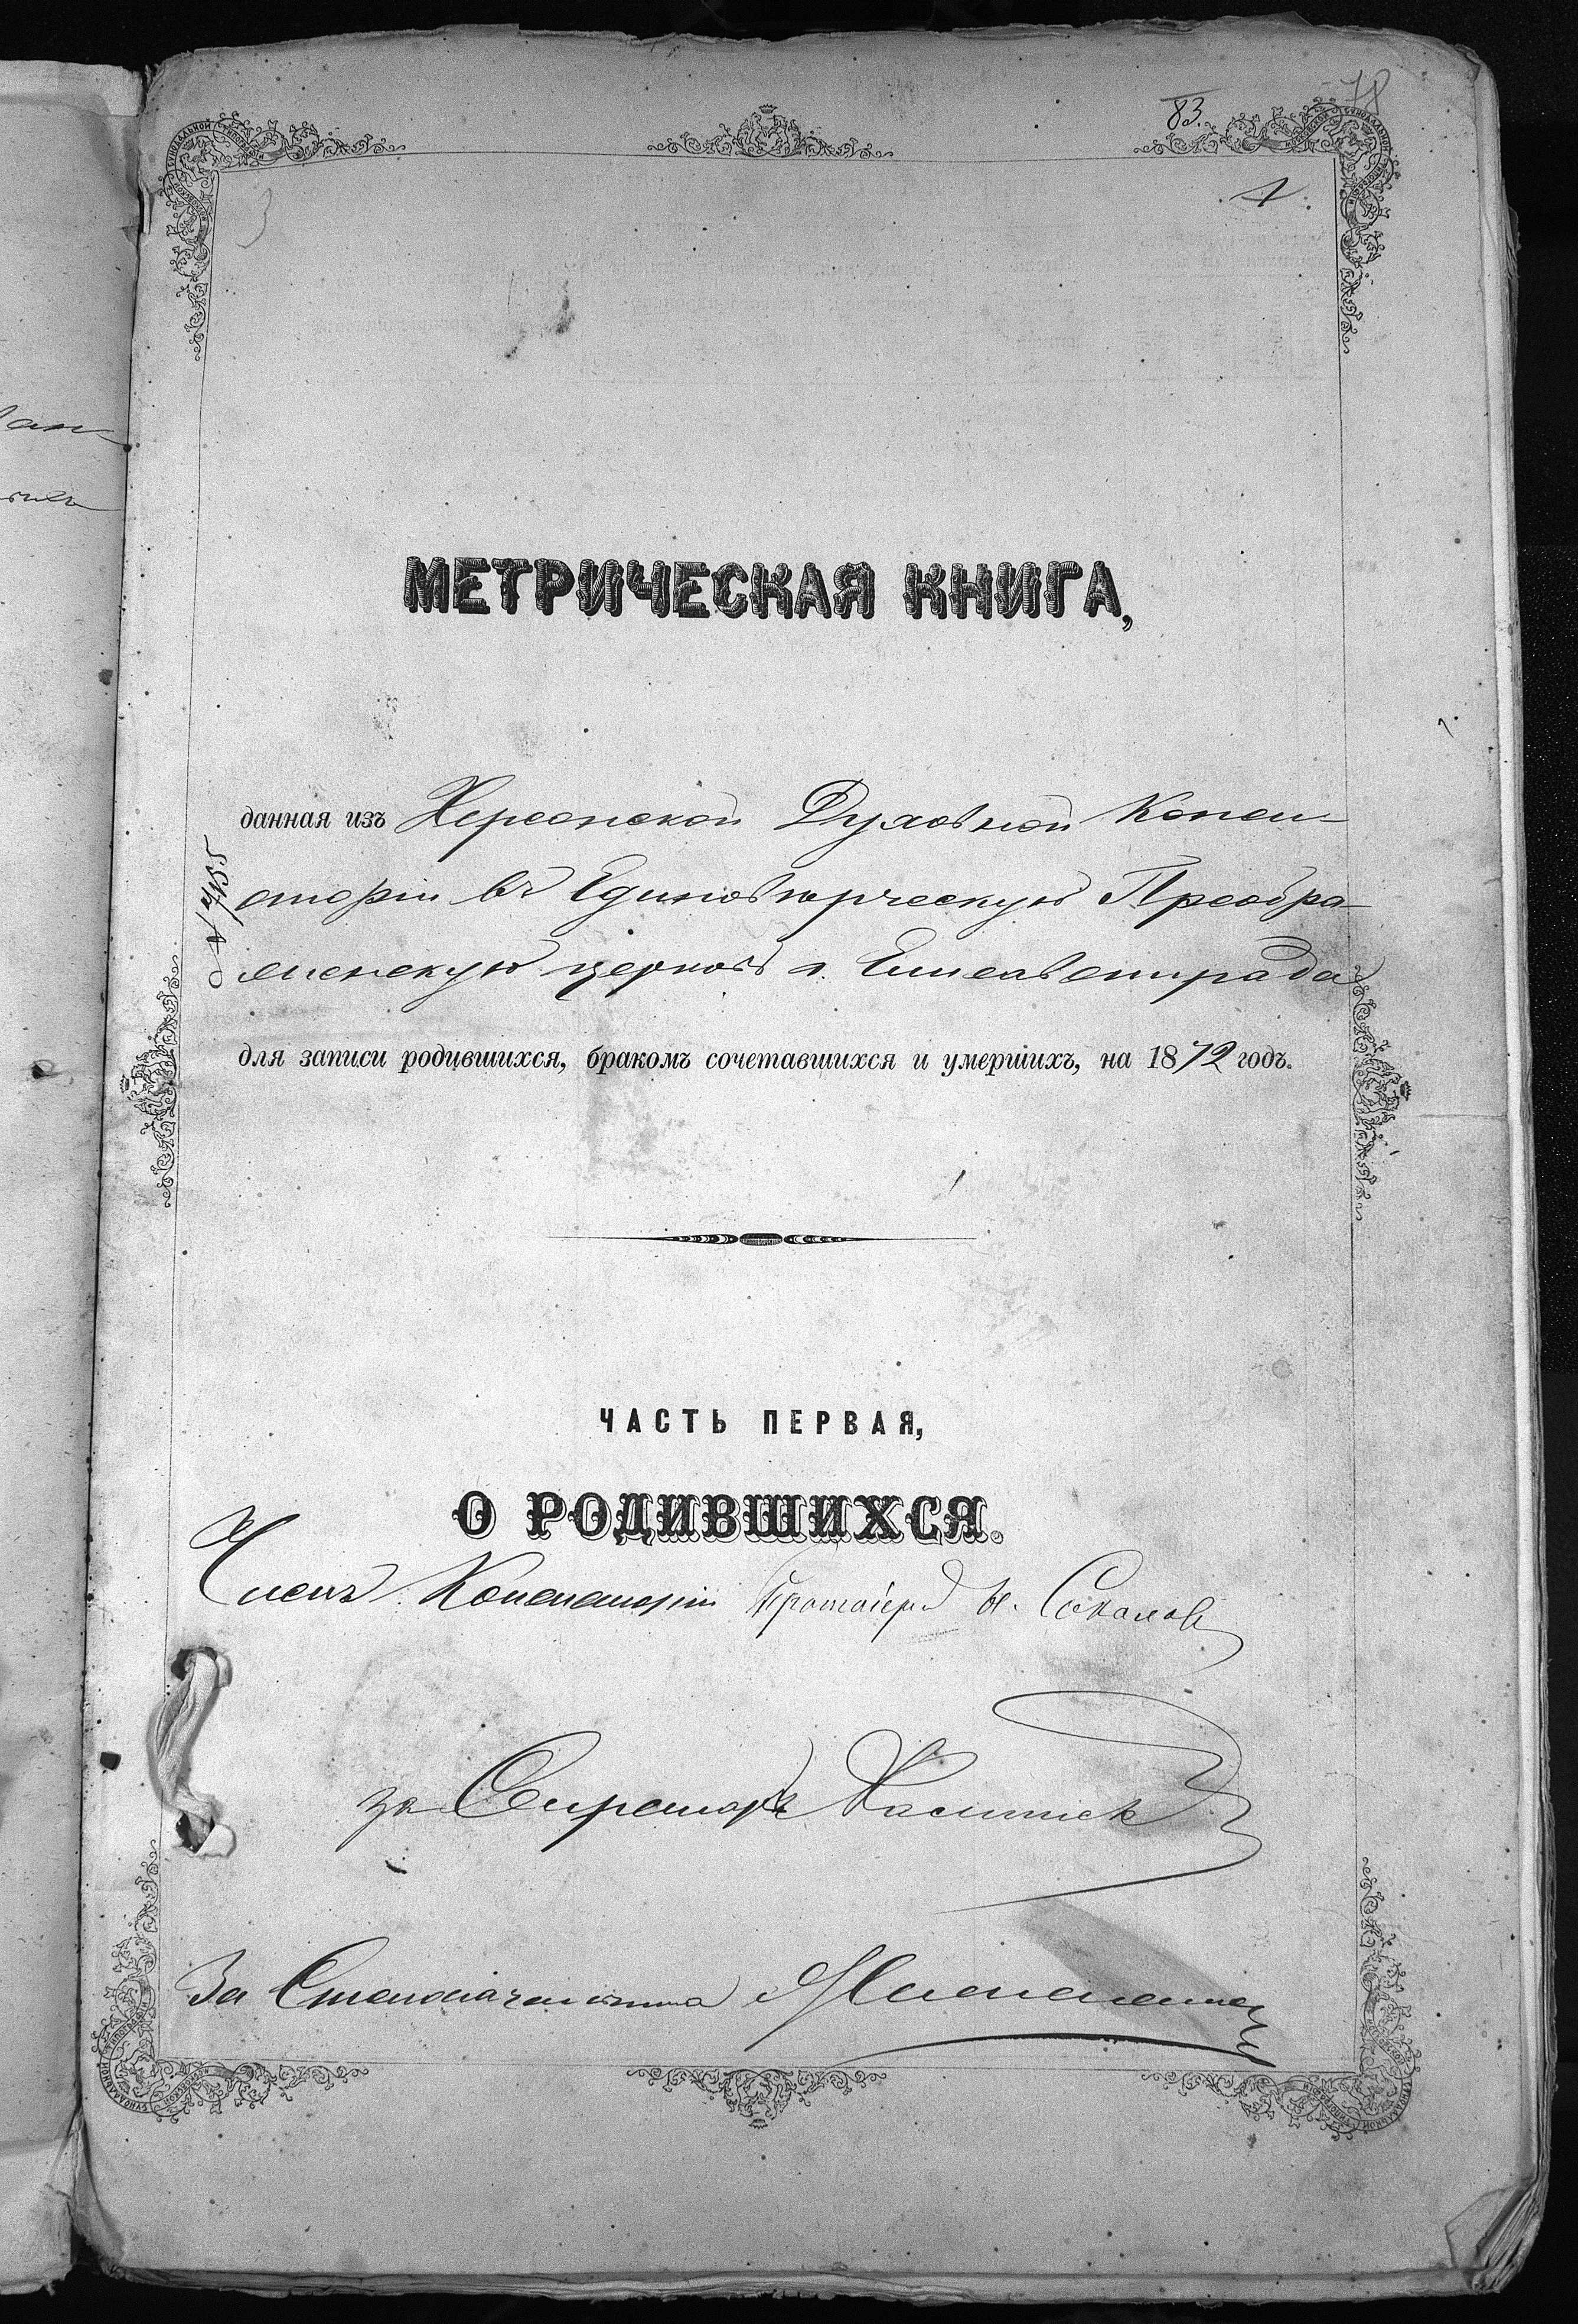 83.
78
3
1.
МЕТРИЧЕСКАЯ КНИГА,
данная изъ Херсонской Духовной Конси-
сторіи въ Единовѣрческую Преобра-
женскую церковь г. Елисаветграда
№ 7155
для записи родившихся, бракомъ сочетавшихся и умершихъ, на 1872 годъ.
ЧАСТЬ ПЕРВАЯ,
О РОДИВШИХСЯ.
Членъ Консисторіи Протоіерей Н. Соколовъ
за Секретаря
За Столоначальника